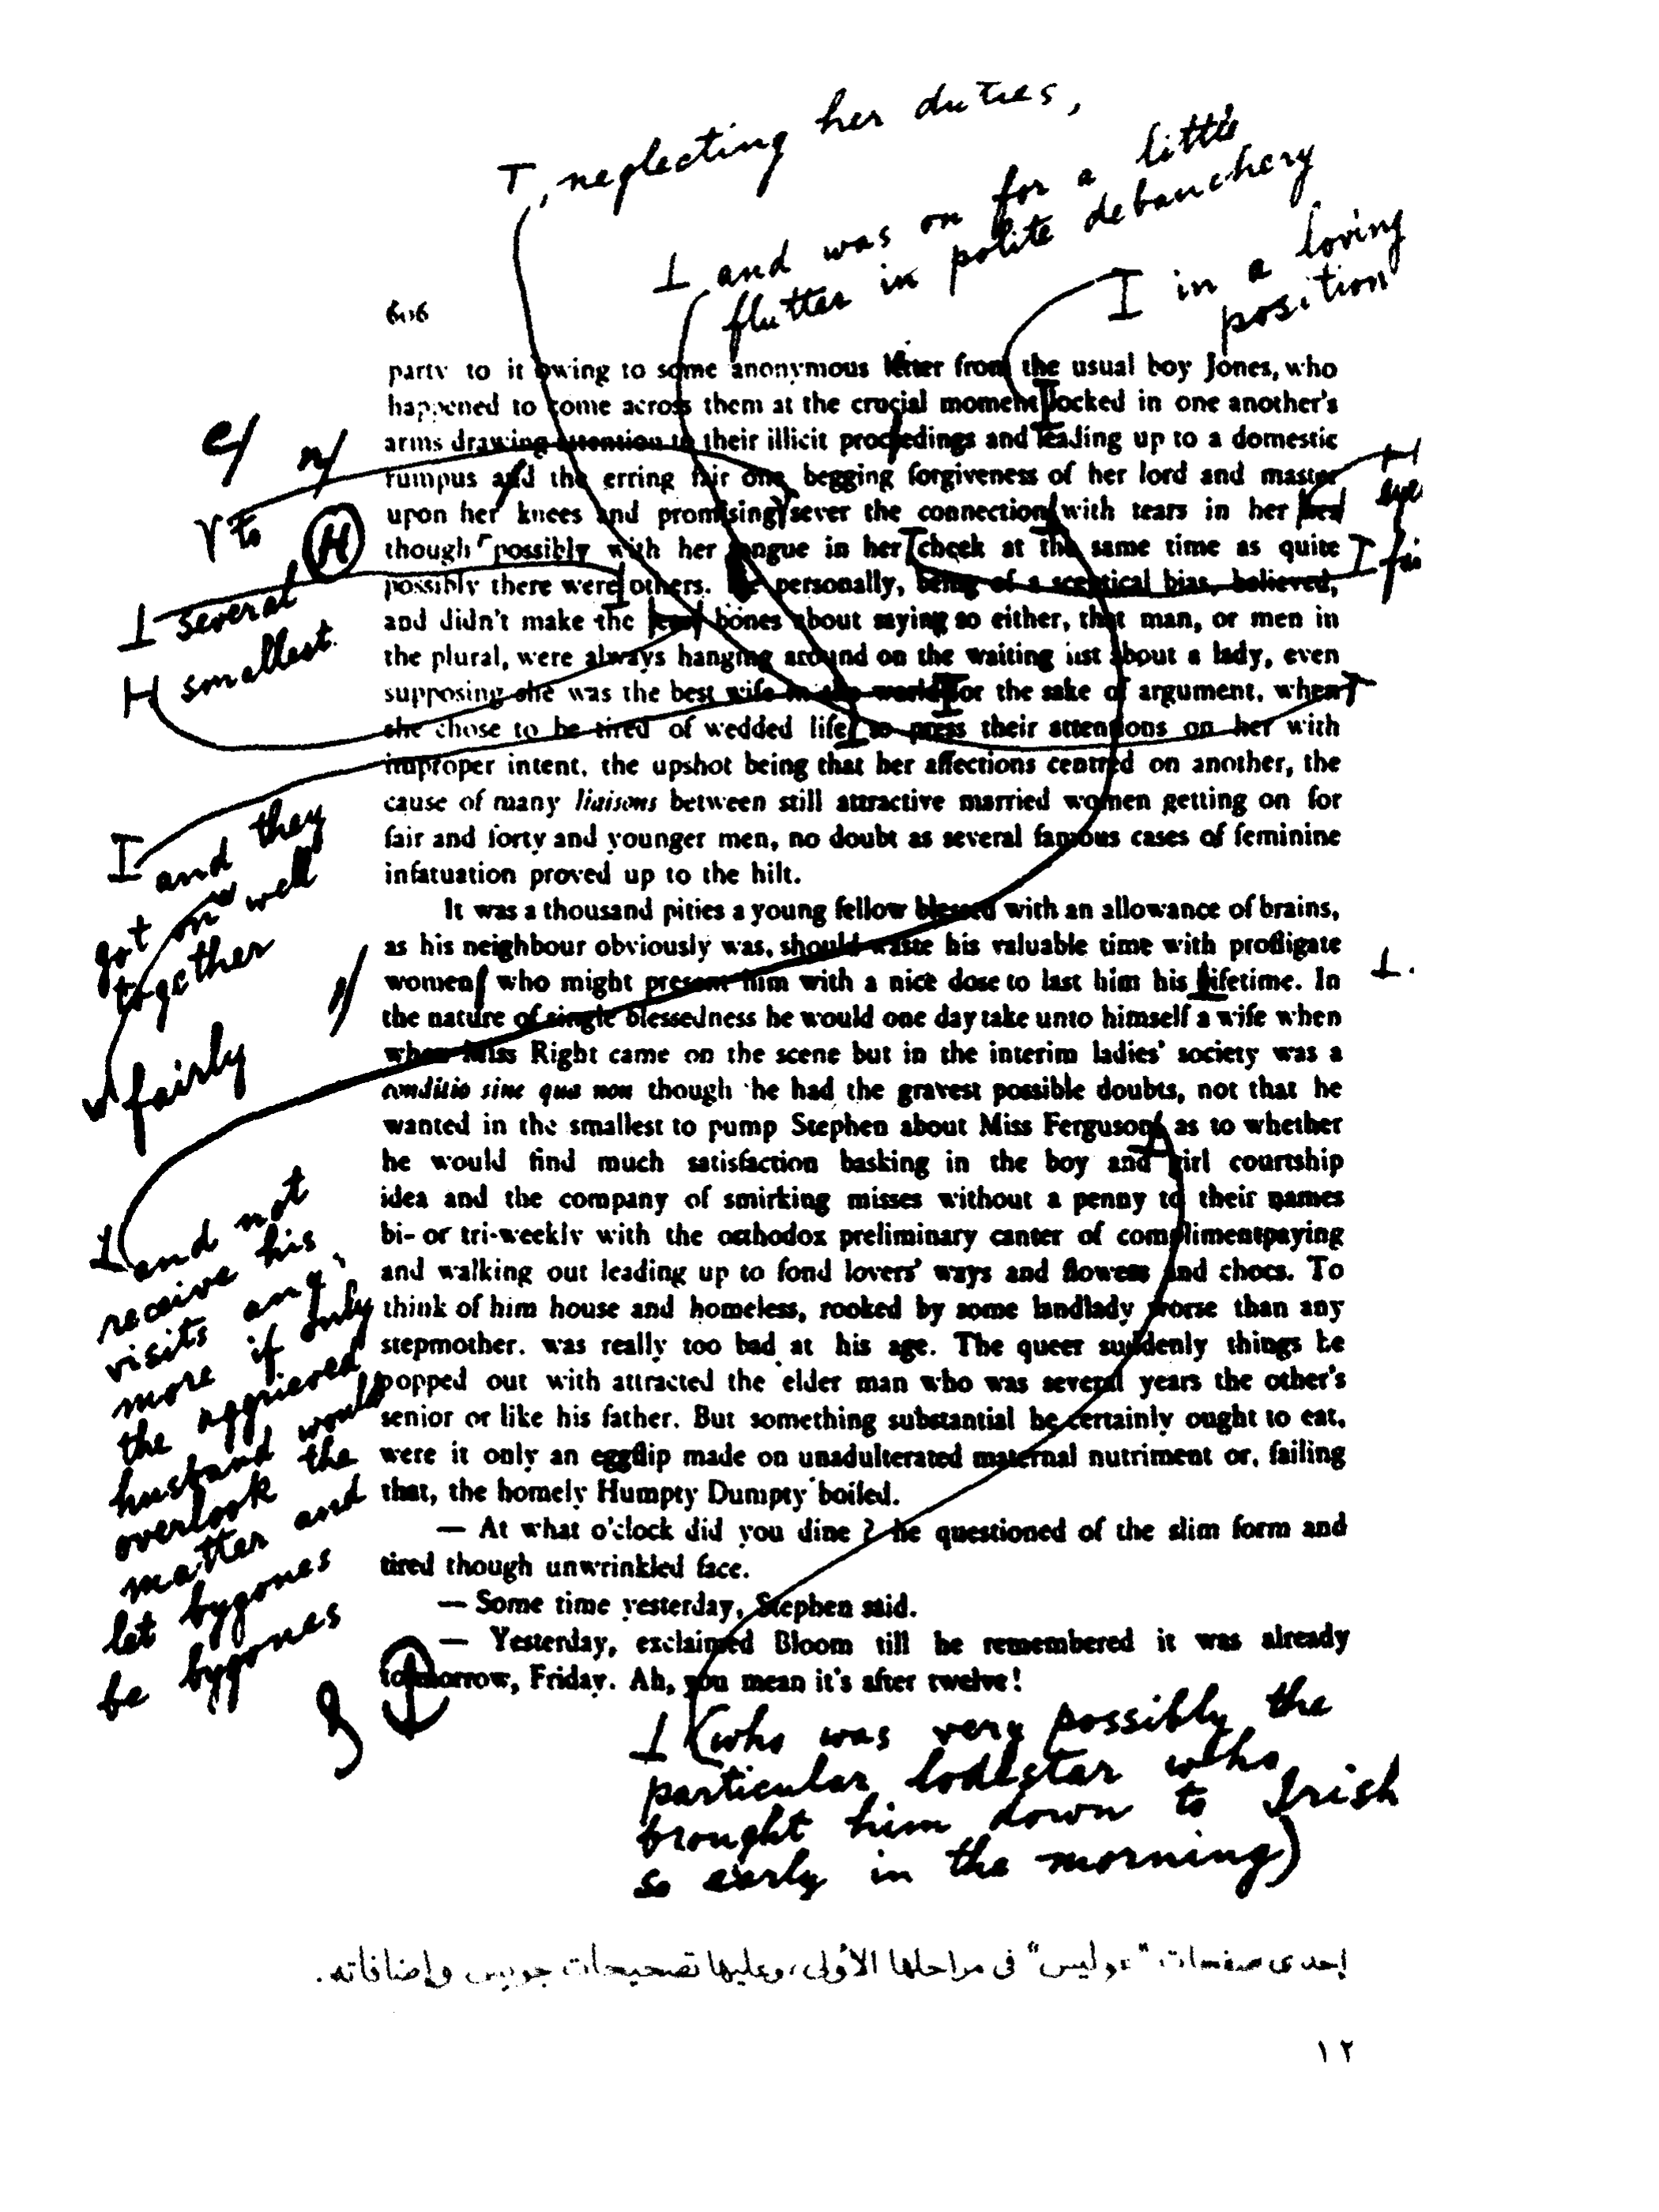 T, neglecting her duties,
I and was on for a little
flutter in polite debauchery
I in a loving
position
606
party to it owing to some anonymous letter from the usual boy Jones, who
happened to come across them at the crucial moment locked in one another's
arms drawing attention to their illicit proceedings and leading up to a domestic
rumpus and the erring fair one begging forgiveness of her lord and master
upon her knees and promising sever the connection with tears in her
though possibly with her tongue in her cheek at the same time as quite
possibly there were others. He personally, being of a sceptical bias, believed,
and didn't make the least bones about saying so either, that man, or men in
the plural, were always hanging around on the waiting list about a lady, even
supposing she was the best wife in the world for the sake of argument, when
she chose to be tired of wedded life to press their attentions on her with
improper intent, the upshot being that her affections centred on another, the
cause of many liaisons between still attractive married women getting on for
fair and forty and younger men, no doubt as several famous cases of feminine
infatuation proved up to the hilt.
It was a thousand pities a young fellow blessed with an allowance of brains,
as his neighbour obviously was, should waste his valuable time with profligate
women, who might present him with a nice dose to last him his lifetime. In
the nature of single blessedness he would one day take unto himself a wife when
when Miss Right came on the scene but in the interim ladies' society was a
conditio sine qua non though he had the gravest possible doubts, not that he
wanted in the smallest to pump Stephen about Miss Ferguson, as to whether
he would find much satisfaction basking in the boy and girl courtship
idea and the company of smirking misses without a penny to their names
bi- or tri-weekly with the orthodox preliminary canter of complimentpaying
and walking out leading up to fond lovers' ways and flowers and chocs. To
think of him house and homeless, rooked by some landlady worse than any
stepmother, was really too bad at his age. The queer suddenly things he
popped out with attracted the elder man who was several years the other's
senior or like his father. But something substantial he certainly ought to eat,
were it only an eggflip made on unadulterated maternal nutriment or, failing
that, the homely Humpty Dumpty boiled.
— At what o'clock did you dine ? he questioned of the slim form and
tired though unwrinkled face.
— Some time yesterday, Stephen said.
— Yesterday, exclaimed Bloom till he remembered it was already
tomorrow, Friday. Ah, you mean it's after twelve!
e/ n/
to
H
I several
H smallest.
I and they
got on well
together
fairly
I and not
receive his
visits any
more if only
the aggrieved
husband would
overlook the
matter and
let bygones
be bygones
I (who was very possibly the
particular lodestar who
brought him down to Irish
so early in the morning)
إحدى صفحات "عوليس" فى مراحلها الأولى، وعليها تصحيحات جويس وإضافاته.
١٢